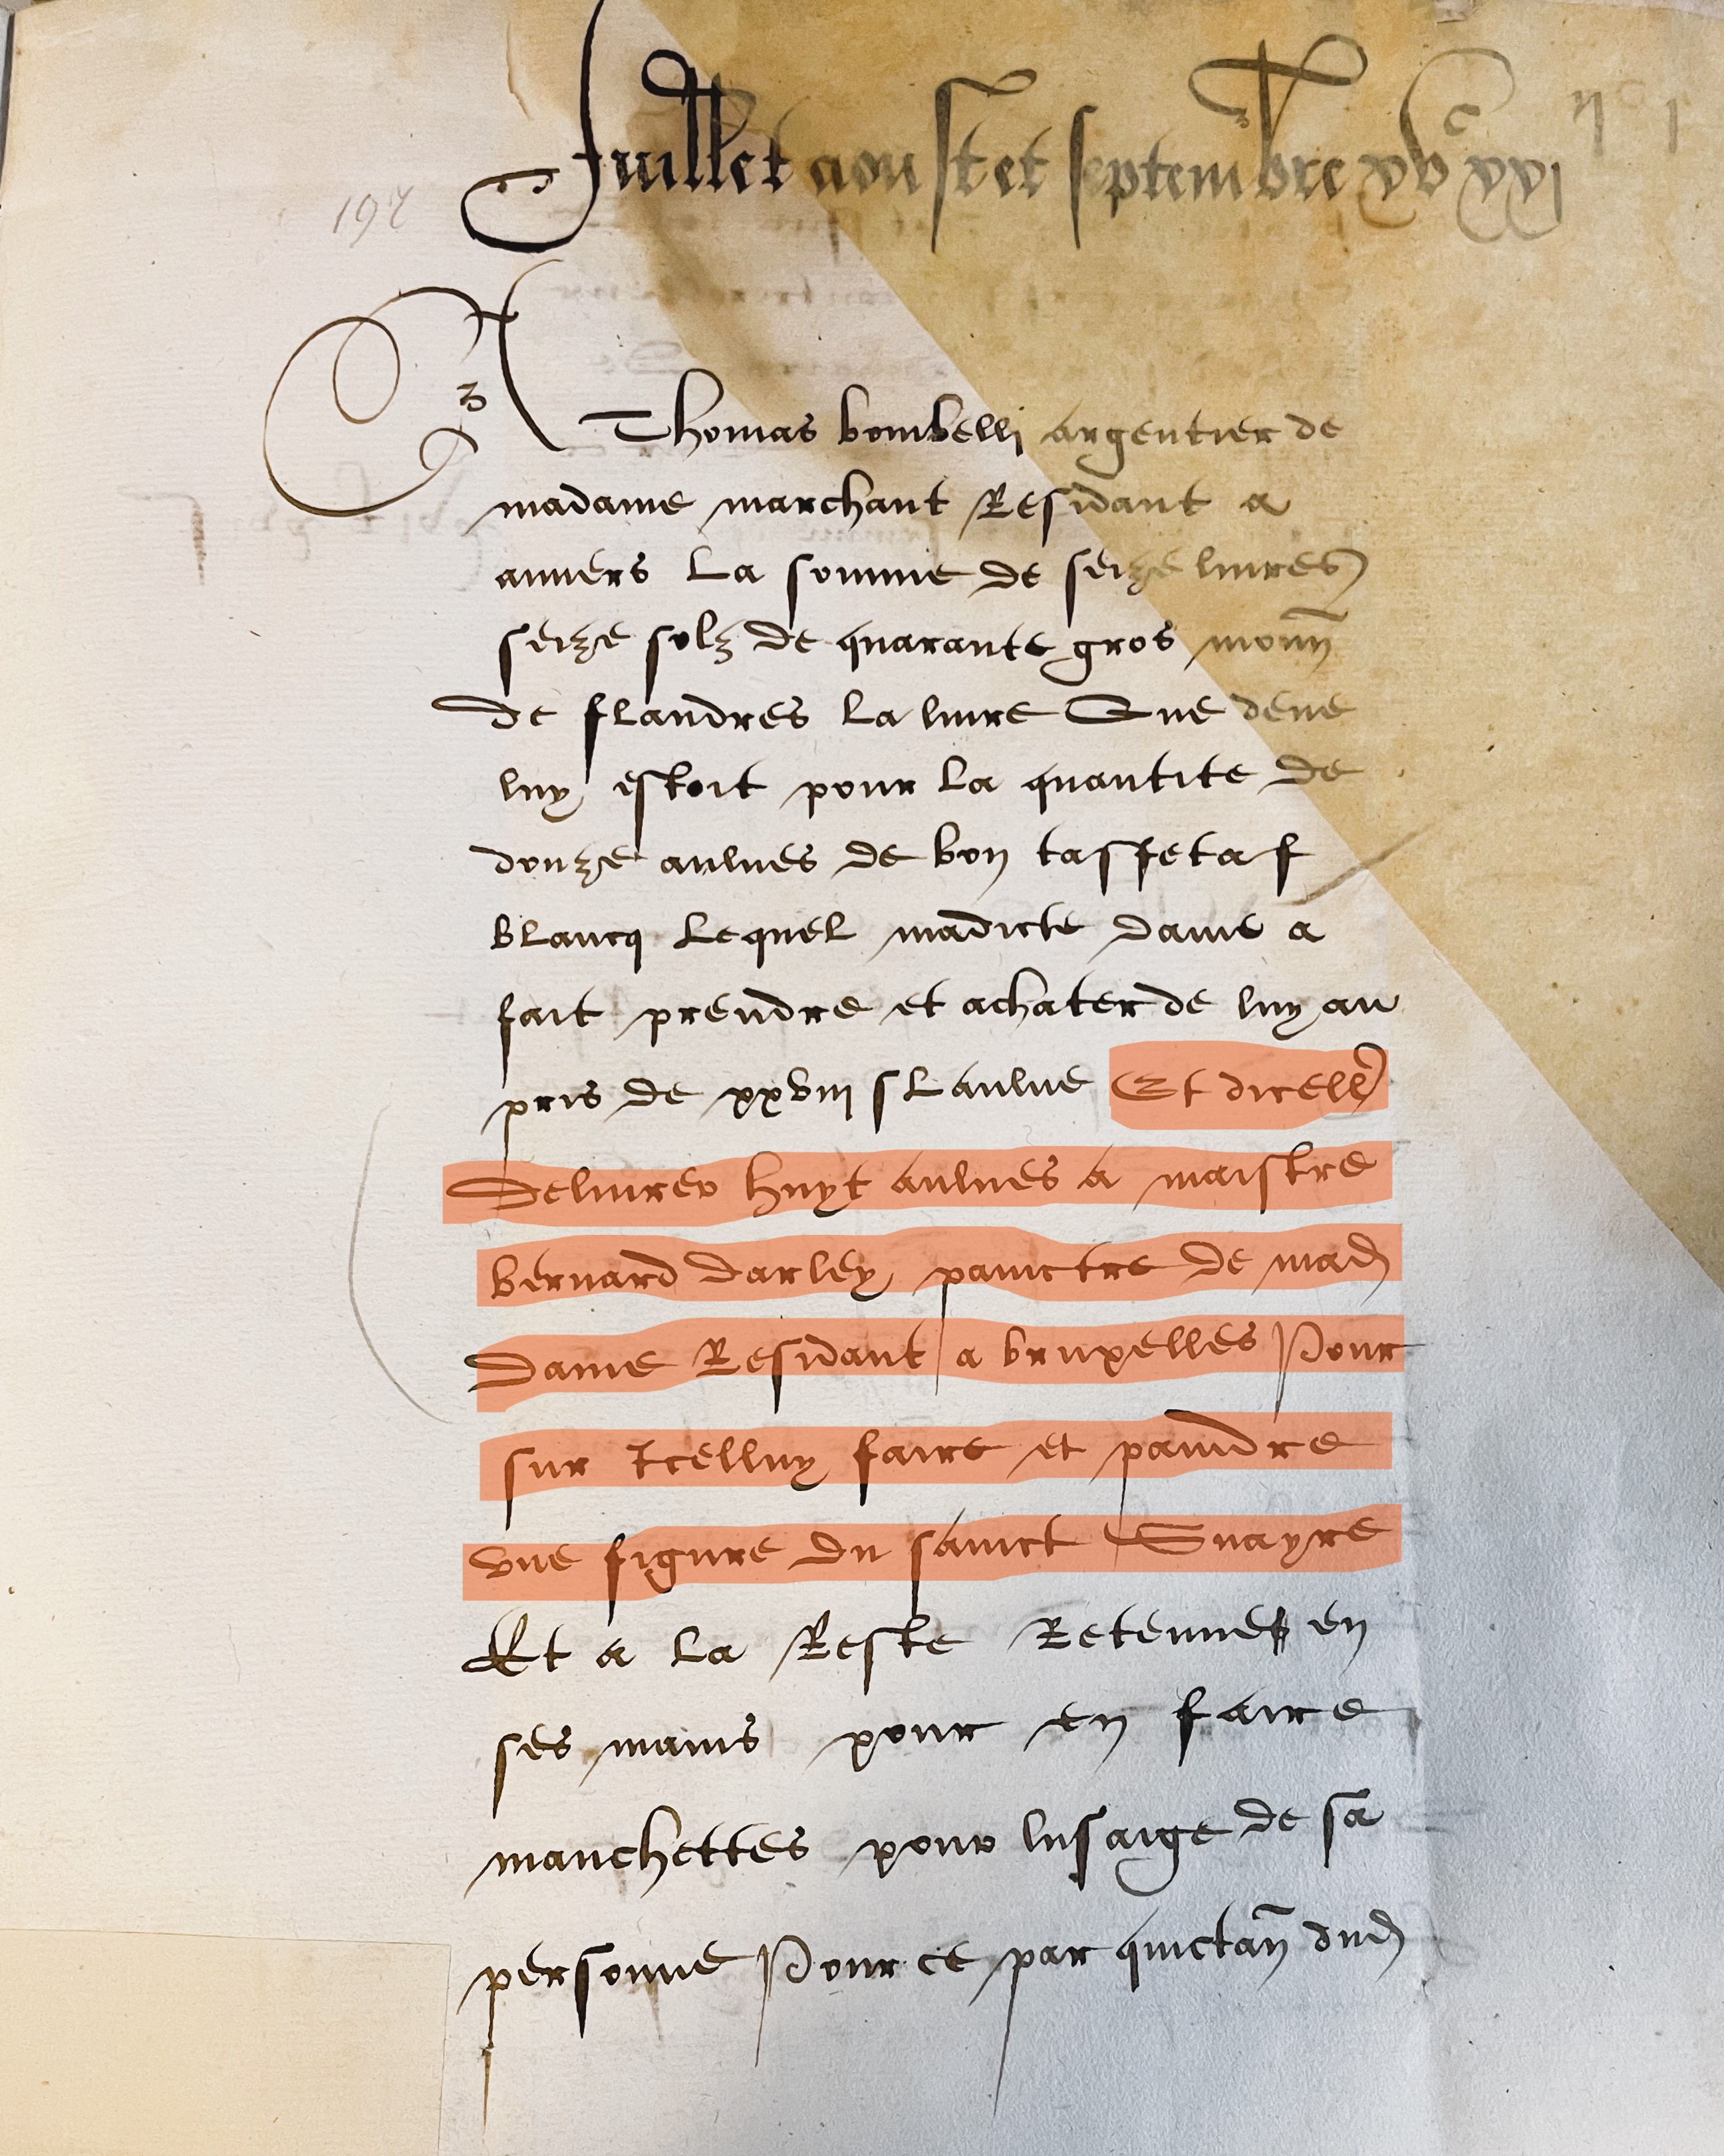 Juillet aoust et septembre xvc xxj
A Thomas bombelli argentier de
madame marchant Residant a
anvers La somme de seize livres
seize solz de quarante gros monn
de flandres la livre Que deue
luy estoit pour la quantite de
douze aulnes de bon taffetaf
blancq Lequel madicte dame a
fait prendre et achater de luy au
pris de xxviij s Laulne Et dicell
delivrer huyt aulnes a maistre
bernard darley painctre de mad
dame Residant a bruxelles Pour
sur Icelluy faire et paindre
vne figure du sainct Suayre
Et a la Reste Retenue en
ses mains pour en faire
manchettes pour lusaige de sa
personne Pour ce par quictan dud